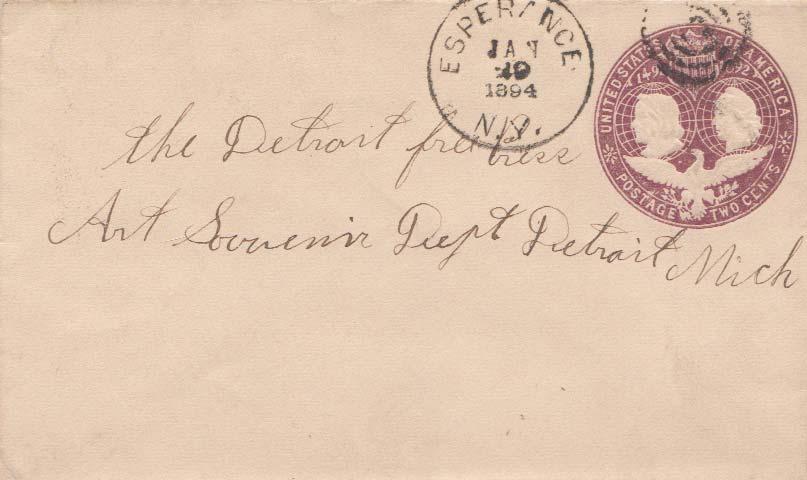 ESPERANCE
JAN
1894
N.Y.
UNITED STATES OF AMERICA
1492
POSTAGE TWO CENTS
the Detroit free press
Art Souvenir Dept Detroit Mich